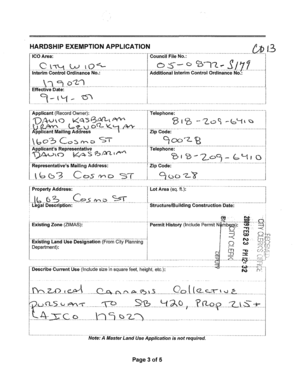 CD 13
HARDSHIP EXEMPTION APPLICATION
ICO Area:
CITY WIDE
Council File No.:
05-0872-S179
Interim Control Ordinance No.:
179027
Additional Interim Control Ordinance No.:
Effective Date:
9-14-07
Applicant (Record Owner):
DAVID KASBARIAN
Telephone:
818-205-6410
Applicant Mailing Address
1603 Cosmo ST
Zip Code:
90028
Applicant's Representative
DAVID KASBARIAN
Telephone:
818-209-6410
Representative's Mailing Address:
1603 Cosmo ST
Zip Code:
90028
Property Address:
1603 Cosmo ST
Lot Area (sq. ft.):
Legal Description:
Structure/Building Construction Date:
Existing Zone (ZIMAS):
Permit History (Include Permit Numbers):
Existing Land Use Designation (From City Planning
Department):
CITY CLERK'S OFFICE
2009 FEB 23 PM 12:32
CITY CLERK
BY
DEPUTY
Describe Current Use (Include size in square feet, height, etc.):
MEDICAL CANNABIS Collective
PURSUANT TO SB 420, PROP 215 +
LA ICO 179027
Note: A Master Land Use Application is not required.
Page 3 of 5